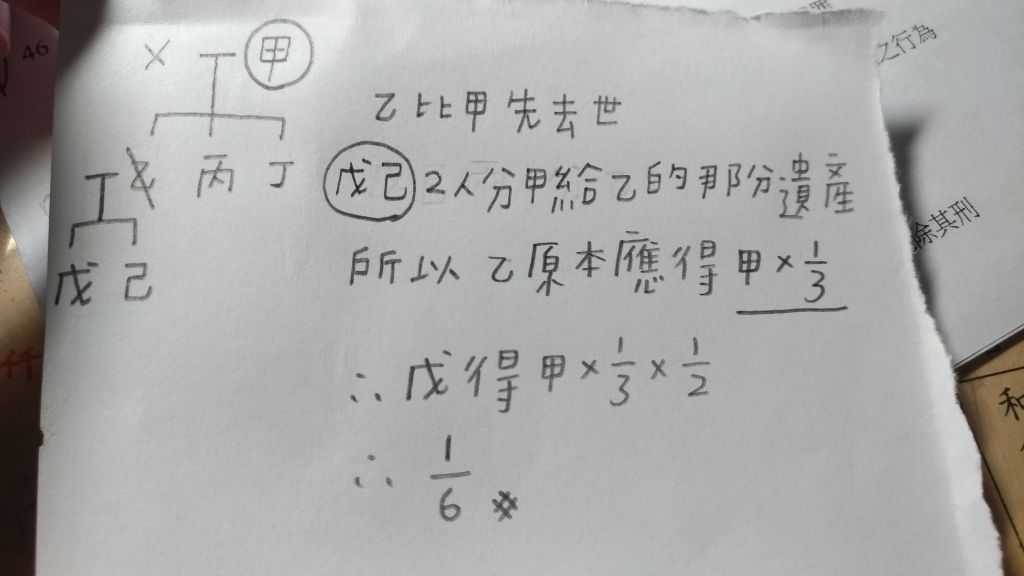 46
× 甲
之行為
乙比甲先去世
乙 丙 丁
戊己2人分甲給乙的那份遺產
除其刑
戊 己
所以乙原本應得甲×1/3
∴戊得甲×1/3×1/2
∴ 1/6